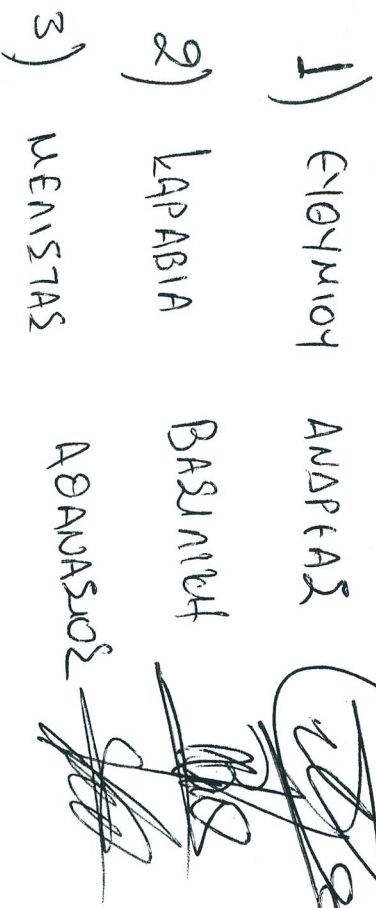 1) ΕΥΘΥΜΙΟΥ ΑΝΔΡΕΑΣ
2) ΚΑΡΑΒΙΑ ΒΑΣΙΛΙΚΗ
3) ΜΕΛΙΣΤΑΣ ΑΘΑΝΑΣΙΟΣ